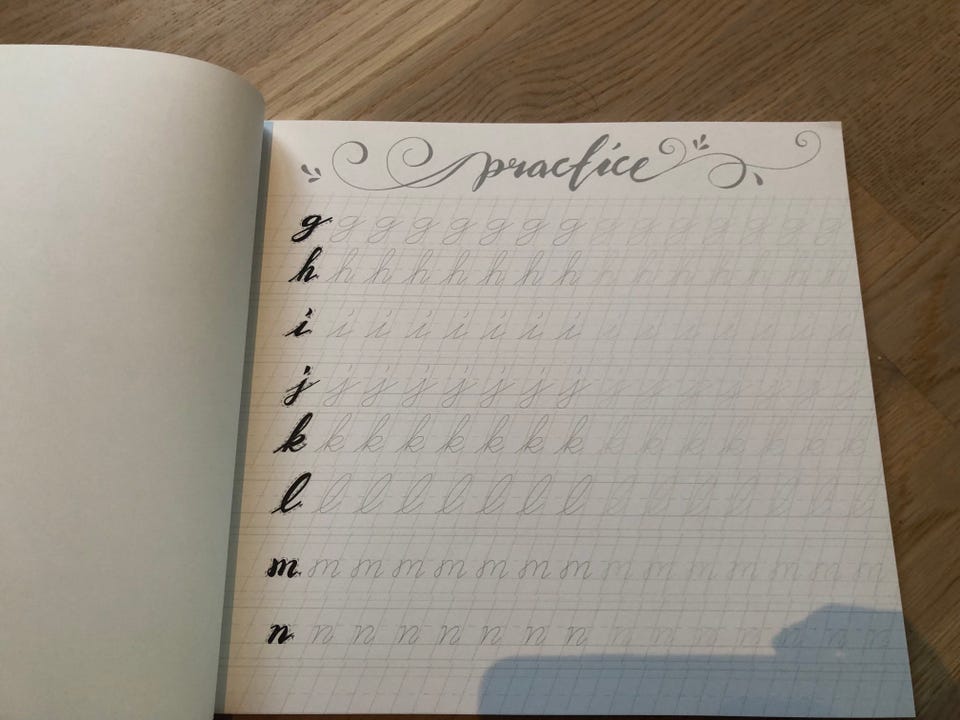 practice
g g g g g g g g g g g g g g g
h h h h h h h h h h h h h h h
i i i i i i i i i i i i i i i
j j j j j j j j j j j j j j j
k k k k k k k k k k k k k k k
l l l l l l l l l l l l l l l
m m m m m m m m m m m m m m m
n n n n n n n n n n n n n n n